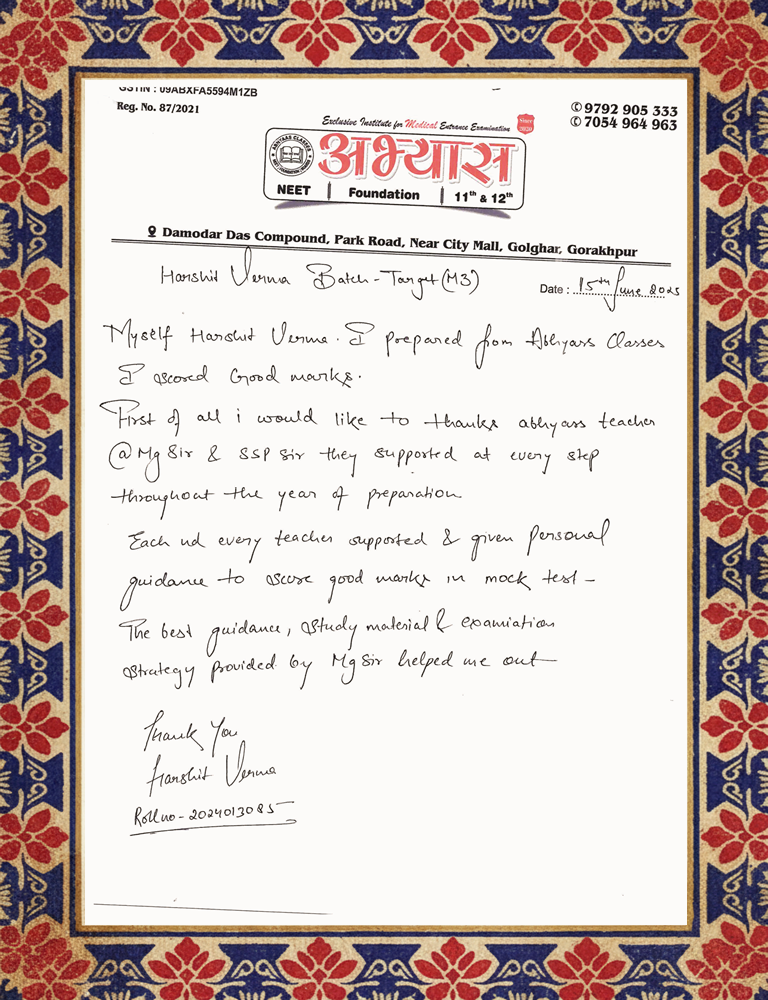 GSTIN : 09ABXFA5594M1ZB
Reg. No. 87/2021
✆ 9792 905 333
✆ 7054 964 963
Exclusive Institute for Medical Entrance Examination
Since 2020
ABHYAAS CLASSES
अभ्यास
NEET | Foundation | 11th & 12th
Damodar Das Compound, Park Road, Near City Mall, Golghar, Gorakhpur
Harshit Verma Batch - Target (M3)
Date : 15th June 2025
Myself Harshit Verma. I prepared from Abhyass Classes
I scored Good marks.
First of all i would like to thanks abhyass teacher
@ Mg Sir & SSP Sir they supported at every step
throughout the year of preparation
Each nd every teacher supported & given Personal
guidance to score good marks in mock test -
The best guidance, study material & examiation
strategy provided by Mg Sir helped me out
Thank You
Harshit Verma
Roll no - 2024013085